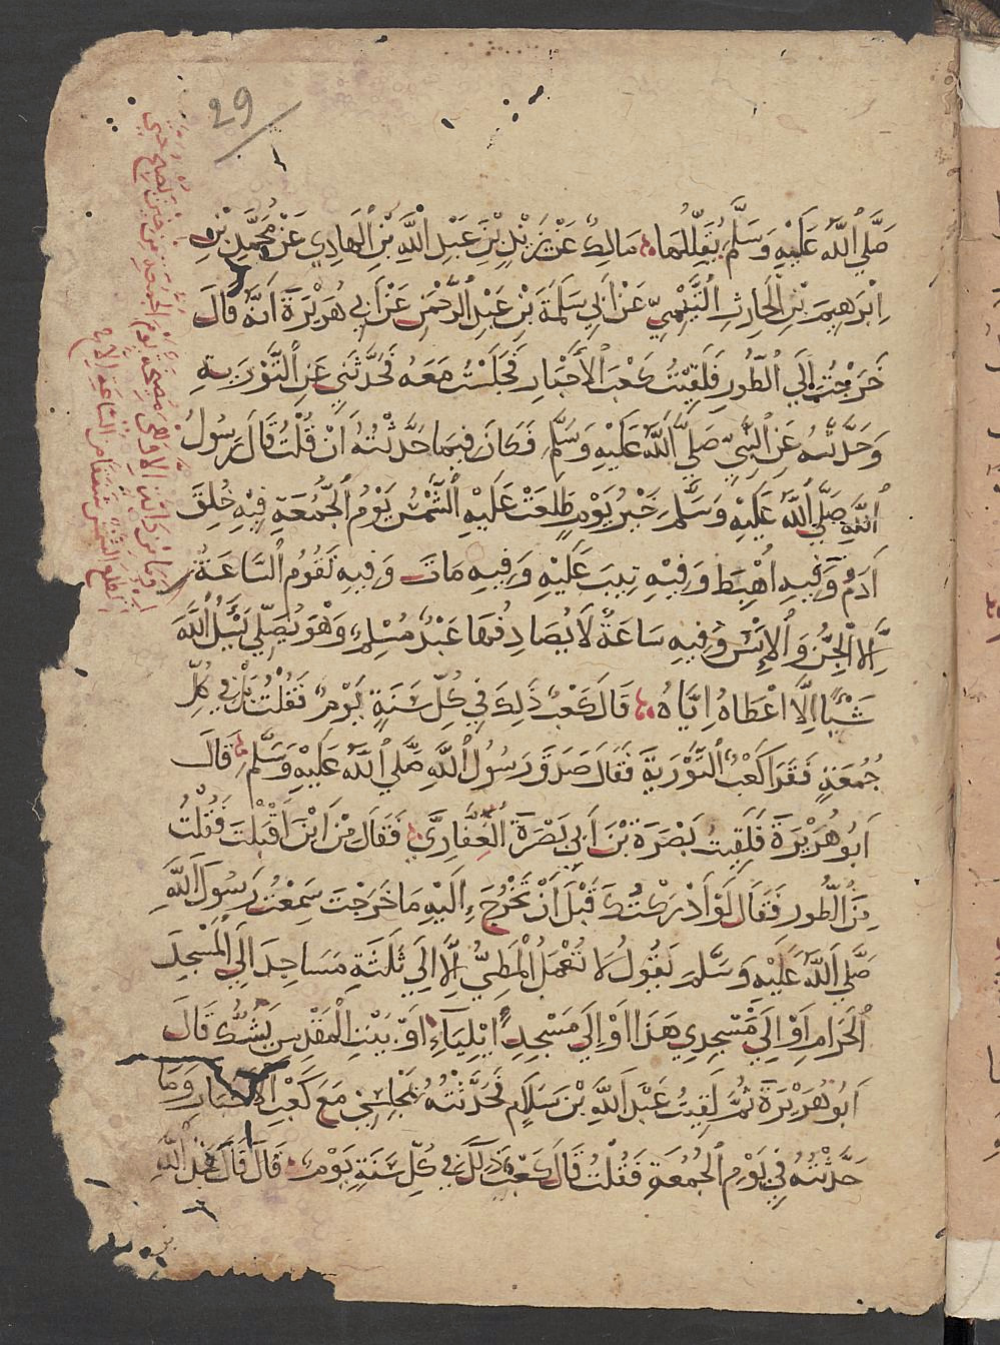 29
صَلَّي اَ۬للَّهُ عَلَيْهِ وَسَلَّمَ يُقَلِّلُهَا مَالِكٌ عَنْ يَزِيدَ بْنِ عَبْدِ اِ۬للَّهِ بْنِ اِ۬لْهَادِي عَنْ مُحَمَّدِ بْنِ
اِبْرَهِيمَ بْنِ الْحَارِثِ اِ۬لتَّيْمِيِّ عَنْ اَبِي سَلَمَةَ بْنِ عَبْدِ اِ۬لرَّحْمَنِ عَنْ اَبِي هُرَيْرَةَ اَنَّهُ قَالَ
خَرَجْتُ اِلَي اَ۬لطُّورِ فَلَقِيتُ كَعْبَ اَ۬لاَحْبَارِ فَجَلَسْتُ مَعَهُ فَحَدَّثَنِي عَنِ اِ۬لتَّوْرَيةِ
وَحَدَّثْتُهُ عَنِ اِ۬لنَّبِيِّ صَلَّي اَ۬للَّهُ عَلَيْهِ وَسَلَّمَ فَكَانَ فِيمَا حَدَّثْتُهُ اَنْ قُلْتُ قَالَ رَسُولُ
اُ۬للَّهِ صَلَّي اَ۬للَّهُ عَلَيْهِ وَسَلَّمَ خَيْرُ يَوْمٍ طَلَعَتْ عَلَيْهِ اِ۬لشَّمْسُ يَوْمُ اُ۬لْجُمُعَةِ فِيهِ خُلِقَ
اَدَمُ وَفِيهِ اُهْبِطَ وَفِيهِ تِيبَ عَلَيْهِ وَفِيهِ مَاتَ وَفِيهِ تَقُومُ اُ۬لسَّاعَةُ
اِلاَّ اَ۬لْجِنُّ وَالاِنْسُ وَفِيهِ سَاعَةٌ لاَ يُصَادِفُهَا عَبْدٌ مُسْلِمٌ وَهْوَ يُصَلِّي يَسْئَلُ اُ۬للَّهَ
شَيْئًا اِلاَّ اعْطَاهُ اِيَّاهُ قَالَ كَعْبٌ ذَلِكَ فِي كُلِّ سَنَةٍ يَوْمٌ فَقُلْتُ بَلْ فِي كُلِّ
جُمُعَةٍ فَقَرَا كَعْبٌ اُ۬لتَّوْرَيةَ فَقَالَ صَدَقَ رَسُولُ اُ۬للَّهِ صَلَّي اَ۬للَّهُ عَلَيْهِ وَسَلَّمَ قَالَ
اَبُو هُرَيْرَةَ فَلَقِيتُ بَصْرَةَ بْنَ اَبِي بَصْرَةَ اَ۬لْغِفَارِيَّ فَقَالَ مِنْ اَيْنَ اَقْبَلْتَ فَقُلْتُ
مِنَ اَ۬لطُّورِ فَقَالَ لَوْ اَدْرَكْتُكَ قَبْلَ اَنْ تَخْرُجَ إِلَيْهِ مَا خَرَجْتَ سَمِعْتُ رَسُولَ اَ۬للَّهِ
صَلَّي اَ۬للَّهُ عَلَيْهِ وَسَلَّمَ يَقُولُ لاَ تُعْمَلُ الْمَطِيُّ اِلاَّ اِلَي ثَلَثَةِ مَسَاجِدَ اِلَي اَ۬لْمَسْجِدِ
اِ۬لْحَرَامِ اَوْ اِلَي مَسْجِدِي هَذَا اَوْ اِلَي مَسْجِدِ اِيْلِيَاءَ اَوْ بَيْتِ اِ۬لْمَقْدِسِ يَشُكُّ قَالَ
اَبُو هُرَيْرَةَ ثُمَّ لَقِيتُ عَبْدَ اَ۬للَّهِ بْنَ سَلاَمٍ فَحَدَّثْتُهُ بِمَجْلِسِي مَعَ كَعْبِ الاَحْبَارِ وَمَا
حَدَّثْتُهُ فِي يَوْمِ اِ۬لْجُمُعَةِ فَقُلْتُ قَالَ كَعْبٌ ذَلِكَ فِي كُلِّ سَنَةٍ يَوْمٌ قَالَ قَالَ عَبْدُ اُ۬للَّهِ
وما من دابة الا وهي مصيخة يوم الجمعة من حين تصبح حتي
تطلع الشمس شفقا من الساعة الا